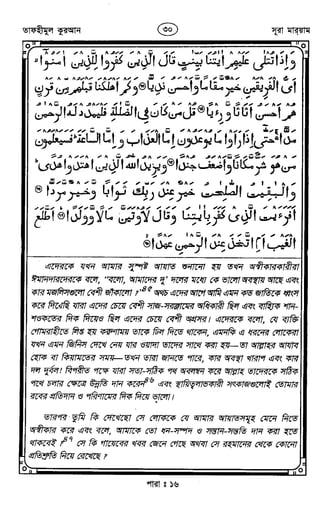 তাফহীমুল কুরআন
৩০
সূরা মার্‌য়াম
وَإِذَا تُتْلَىٰ عَلَيْهِمْ اٰيٰتُنَا بَيِّنٰتٍ قَالَ الَّذِيْنَ كَفَرُوْا لِلَّذِيْنَ اٰمَنُوْٓا
اَىُّ الْفَرِيْقَيْنِ خَيْرٌ مَّقَامًا وَّاَحْسَنُ نَدِيًّا ﴿ وَكَمْ اَهْلَكْنَا قَبْلَهُمْ مِّنْ قَرْنٍ
هُمْ اَحْسَنُ اَثَاثًا وَّرِءْيًا ﴿ قُلْ مَنْ كَانَ فِى الضَّلٰلَةِ فَلْيَمْدُدْ لَهُ الرَّحْمٰنُ
مَدًّا ۚ حَتّٰىٓ اِذَا رَاَوْا مَا يُوْعَدُوْنَ اِمَّا الْعَذَابَ وَاِمَّا السَّاعَةَ ؕ فَسَيَعْلَمُوْنَ
مَنْ هُوَ شَرٌّ مَّكَانًا وَّاَضْعَفُ جُنْدًا ﴿ وَيَزِيْدُ اللّٰهُ الَّذِيْنَ اهْتَدَوْا هُدًى ؕ
وَالْبٰقِيٰتُ الصّٰلِحٰتُ خَيْرٌ عِنْدَ رَبِّكَ ثَوَابًا وَّخَيْرٌ مَّرَدًّا ﴿
اَفَرَءَيْتَ الَّذِىْ كَفَرَ بِاٰيٰتِنَا وَقَالَ لَاُوْتَيَنَّ مَالًا وَّوَلَدًا ﴿ اَطَّلَعَ
الْغَيْبَ اَمِ اتَّخَذَ عِنْدَ الرَّحْمٰنِ عَهْدًا ﴿
এদেরকে যখন আমার সুস্পষ্ট আয়াত শুনানো হয় তখন অস্বীকারকারীরা
ঈমানদারদেরকে বলে, "বলো, আমাদের দু' দলের মধ্যে কে ভালো অবস্থায় আছে এবং
কার মজলিসগুলো বেশী জাঁকালো?"৪৫ অথচ এদের আগে আমি এমন কত জাতিকে ধ্বংস
করে দিয়েছি যারা এদের চেয়ে বেশী সাজ-সরঞ্জামের অধিকারী ছিল এবং বাহ্যিক শান-
শওকতের দিক দিয়েও ছিল এদের চেয়ে বেশী অগ্রসর। এদেরকে বলো, যে ব্যক্তি
গোমরাহীতে লিপ্ত হয় করুণাময় তাকে ঢিল দিতে থাকেন, এমনকি এ ধরনের লোকেরা
যখন এমন জিনিস দেখে নেয় যার ওয়াদা তাদের সাথে করা হয়—তা আল্লাহর আযাব
হোক বা কিয়ামতের সময়—তখন তারা জানতে পারে, কার অবস্থা খারাপ এবং কার
দল দুর্বল! বিপরীত পক্ষে যারা সত্য-সঠিক পথ অবলম্বন করে আল্লাহ তাদেরকে সঠিক
পথে চলার ক্ষেত্রে উন্নতি দান করেন৪৬ এবং স্থায়িত্বলাভকারী সৎকাজগুলোই তোমার
রবের প্রতিদান ও পরিণামের দিক দিয়ে ভালো।
তারপর তুমি কি দেখেছো সে লোককে যে আমার আয়াতসমূহ মেনে নিতে
অস্বীকার করে এবং বলে, আমাকে তো ধন-সম্পদ ও সন্তান-সন্ততি দান করা হতে
থাকবেই?৪৭ সে কি গায়েবের খবর জেনে গেছে অথবা সে রহমানের থেকে কোনো
প্রতিশ্রুতি নিয়ে রেখেছে?
পারা ঃ ১৬